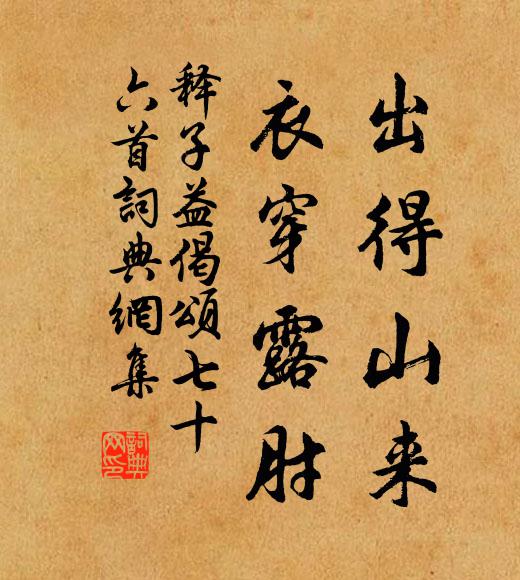 出得山来
衣穿露肘
释子益偈頌七十
六首詞典網集
詞典网印